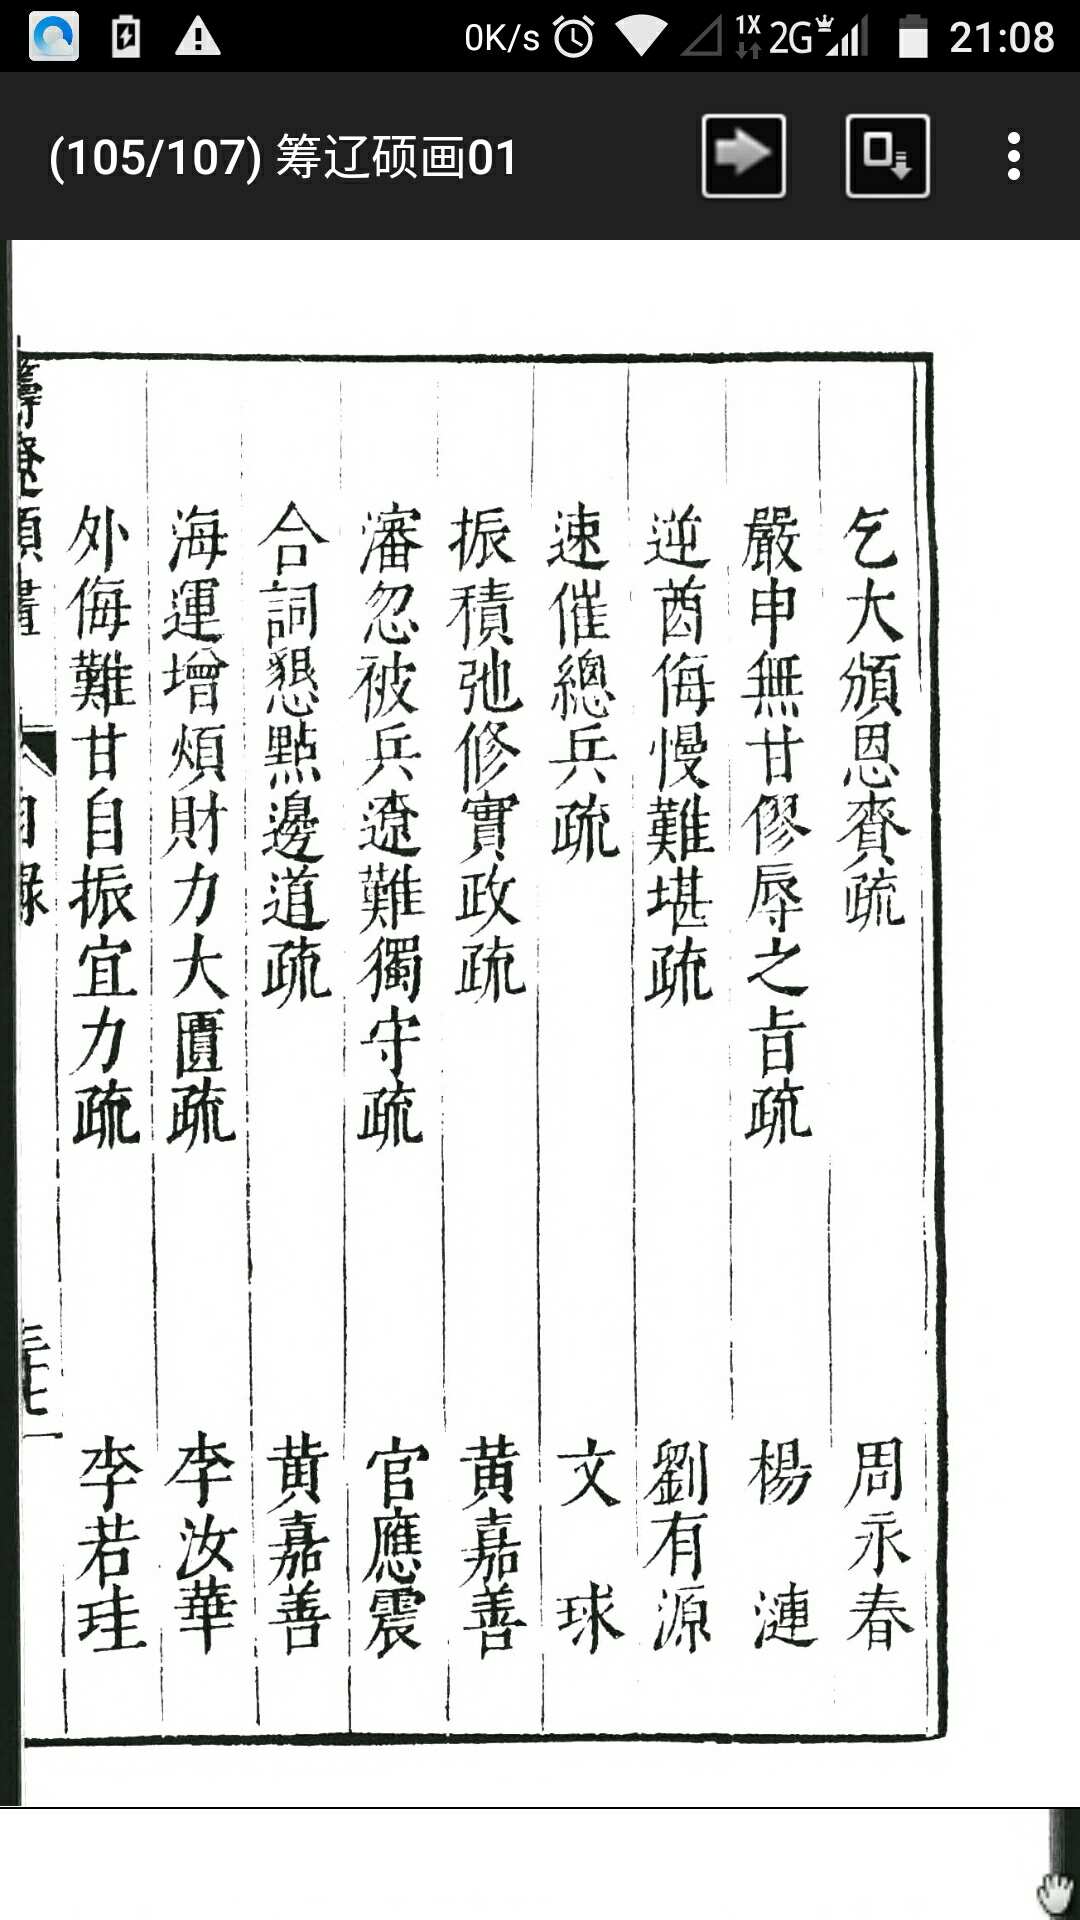 0K/s 1X 2G 21:08
(105/107) 筹辽硕画01
乞大頒恩賚疏 周永春
嚴申無甘僇辱之旨疏 楊漣
逆酋侮慢難堪疏 劉有源
速催總兵疏 文球
振積弛修實政疏 黄嘉善
瀋忽被兵遼難獨守疏 官應震
合詞懇點邊道疏 黄嘉善
海運增煩財力大匱疏 李汝華
外侮難甘自振宜力疏 李若珪